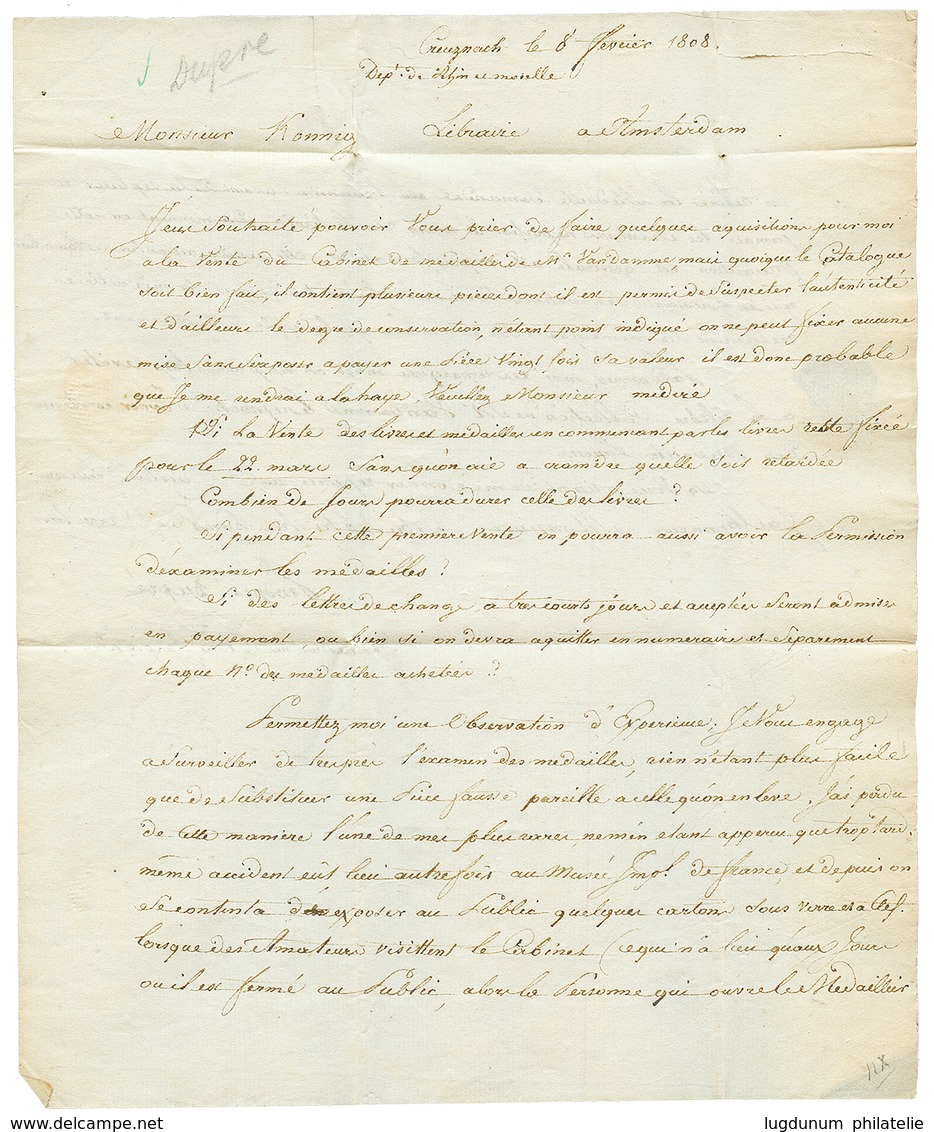 Dupré
Creuznach le 8 fevrier 1808.
Dept. de Rhin et moselle
Monsieur Konnig Libraire a Amsterdam
J'eus Souhaité pouvoir Vous prier de faire quelques aquisitions pour moi
a la Vente du Cabinet de medailles de Mr Vandamme, mais quoique le Catalogue
soit bien fait, il contient plusieurs pieces dont il est permis de Suspecter l'autenticité
et d'ailleurs le degre de conservation, n'étant point indiqué on ne peut fixer aucune
mise Sans S'exposer a payer une Piéce Vingt fois Sa valeur il est donc probable
que Je me rendrai a la haye, Veuillez Monsieur me diré
Si La Vente des livres et medailles en communant par les livres reste fixée
pour le 22. mars Sans qu'on aie a craindre qu'elle soit retardée
Combien de Jours pourra durer celle des livres ?
Si pendant cette premiere Vente on pourra aussi avoir la Permission
d'éxaminer les medailles ?
Si des lettres de change a tres courts jours et acceptées Seront admises
en payement, ou bien si on devra aquitter en numeraire et Séparement
chaque No. des medailles achetées ?
Permettez moi une Observation d'Experience. Je Vous engage
a Surveiller de tres près l'examen des medailles, rien n'étant plus facile
que de Substituer une Piéce fausse pareille a celle qu'on enleve. J'ai perdu
de Cette maniere l'une de mes plus rares, ne m'en etant apperçu que trop tard.
même accident eut lieu autrefois au Musée Impl. de france, et depuis on
Se contenta d'exposer au Public quelques cartons sous verre et a Clef.
lorsque des Amateurs visittent le Cabinet (ce qui n'a lieu qu'aux Jours
ou il est fermé au Public, alors la Personne qui ouvre le Medaillier
lugdunum philatelie